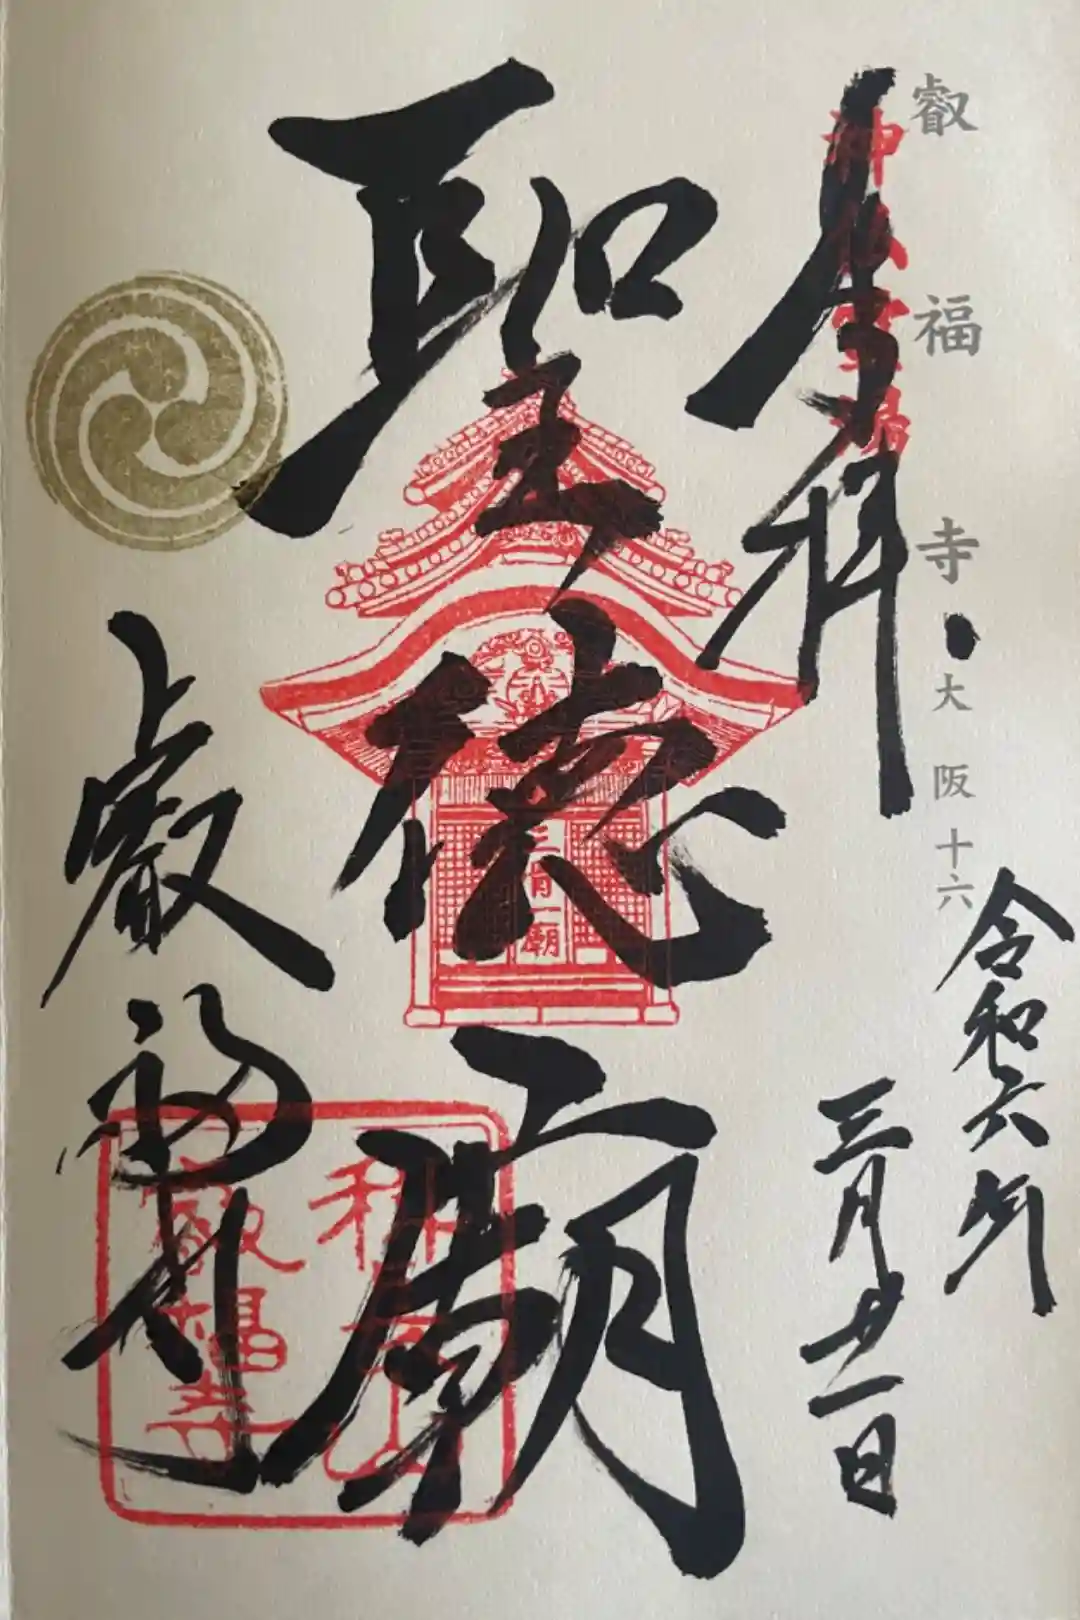 叡福寺・大阪十六
令和六年
三月廿一日
奉拝
神仏霊場
聖徳廟
三骨一廟
叡福寺
叡福寺